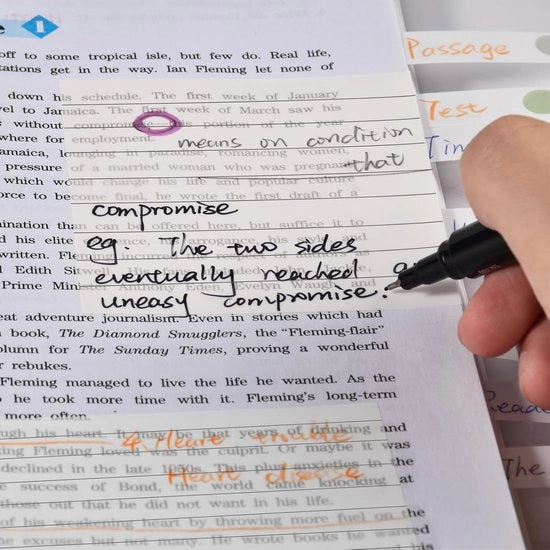 1
off to some tropical isle, but few do. Real life,
tations get in the way. Ian Fleming let none of
down his schedule. The first week of January
vel to Jamaica. The first week of March saw his
s without compromise this portion of the year
where for employment.
means on condition
that
amaica, lounging in paradise, romancing women,
pressure of a married woman who was pregnant
which would change his life and popular culture
orce to become final, he wrote the first draft of a
compromise
eg The two sides
eventually reached an
uneasy compromise.
mination than can be offered here, but suffice it to
Prime Minister Anthony Eden, Evelyn Waugh and
eat adventure journalism. Even in stories which had
book, The Diamond Smugglers, the “Fleming-flair”
olumn for The Sunday Times, proving a wonderful
r rebukes.
Fleming managed to live the life he wanted. As the
o he took more time with it. Fleming's long-term
more often.
ugh his heart. It may be that years of drinking and
4. Heart trouble
king Fleming loved was the culprit. Or maybe it was
declined in the late 1950s. This plus anxieties in the
Heart disease
e success of Bond, the world came knocking at
those out that he did not want in his life.
of his weakening heart by throwing more fuel on the
he excuses but not many. He wrote books he wanted
Passage
Test
Tim
Read
The